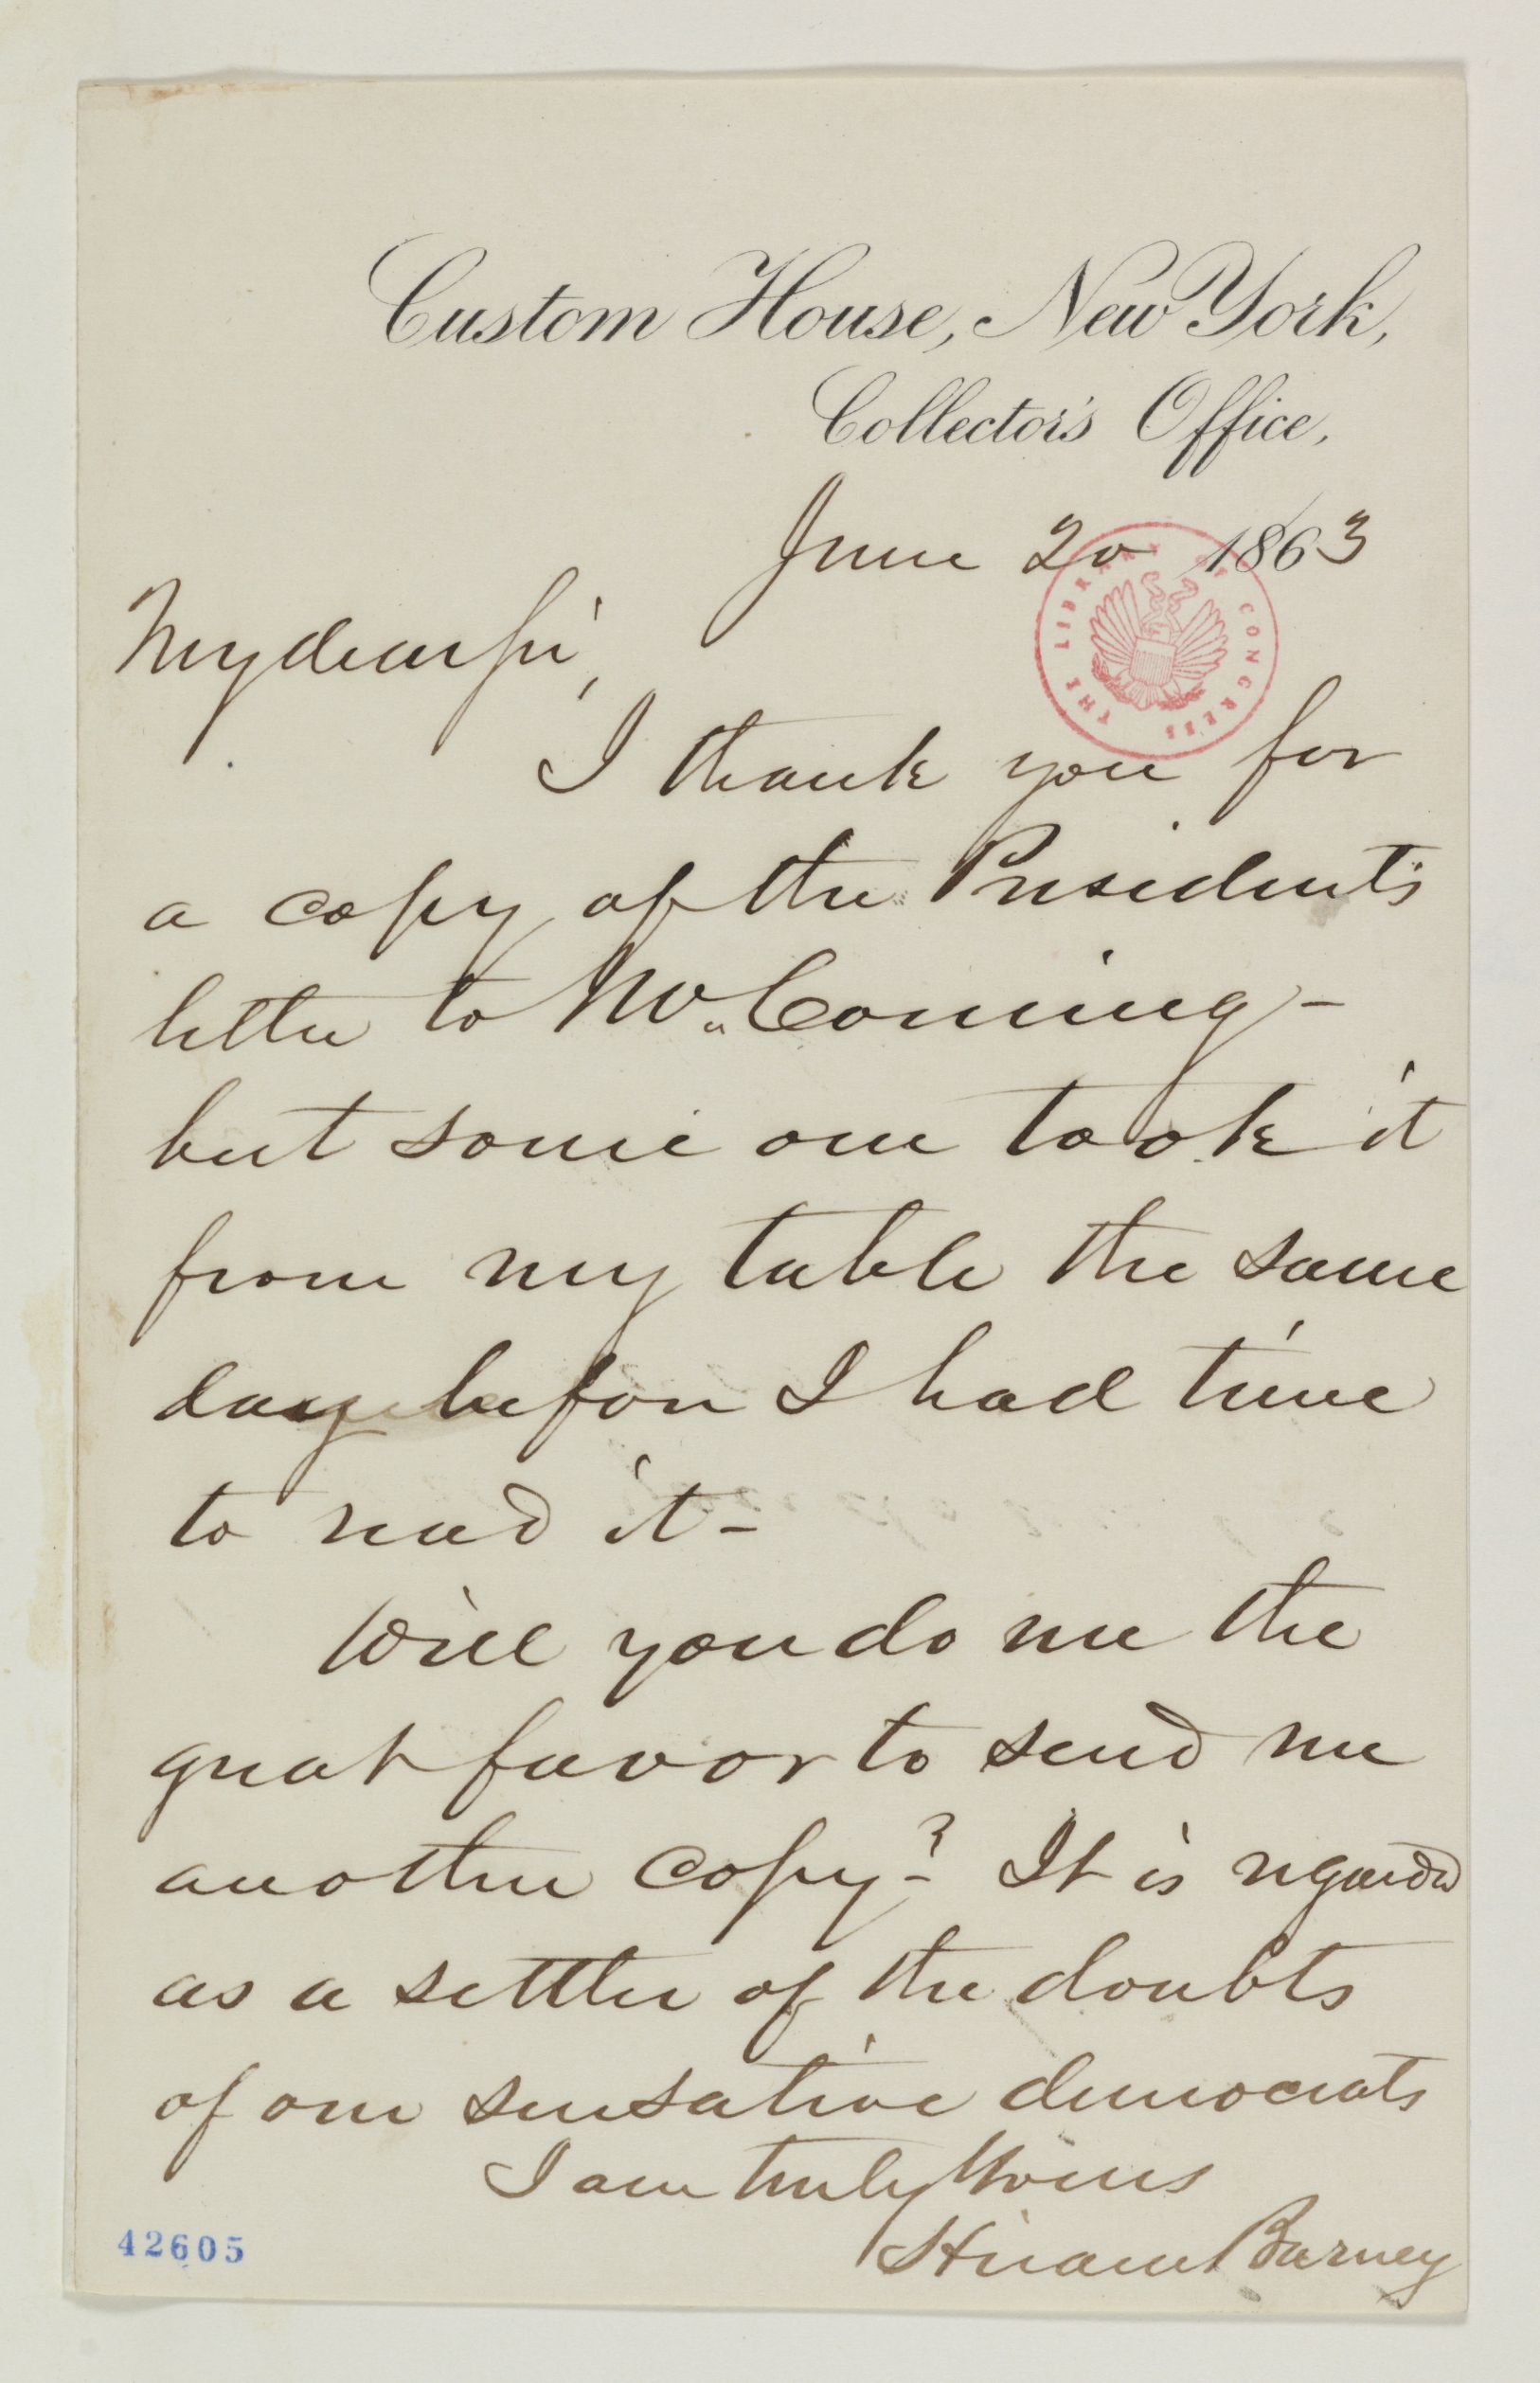 Custom House, New York,
Collector's Office,
June 20 1863
My dear Sir,
I thank you for
a copy of the President's
letter to Mr. Corning -
but some one took it
from my table the same
day before I had time
to read it -
Will you do me the
great favor to send me
another copy? - It is regarded
as a settler of the doubts
of our sensative democrats
I am truly Yours
Hiram Barney
42605
THE LIBRARY OF CONGRESS